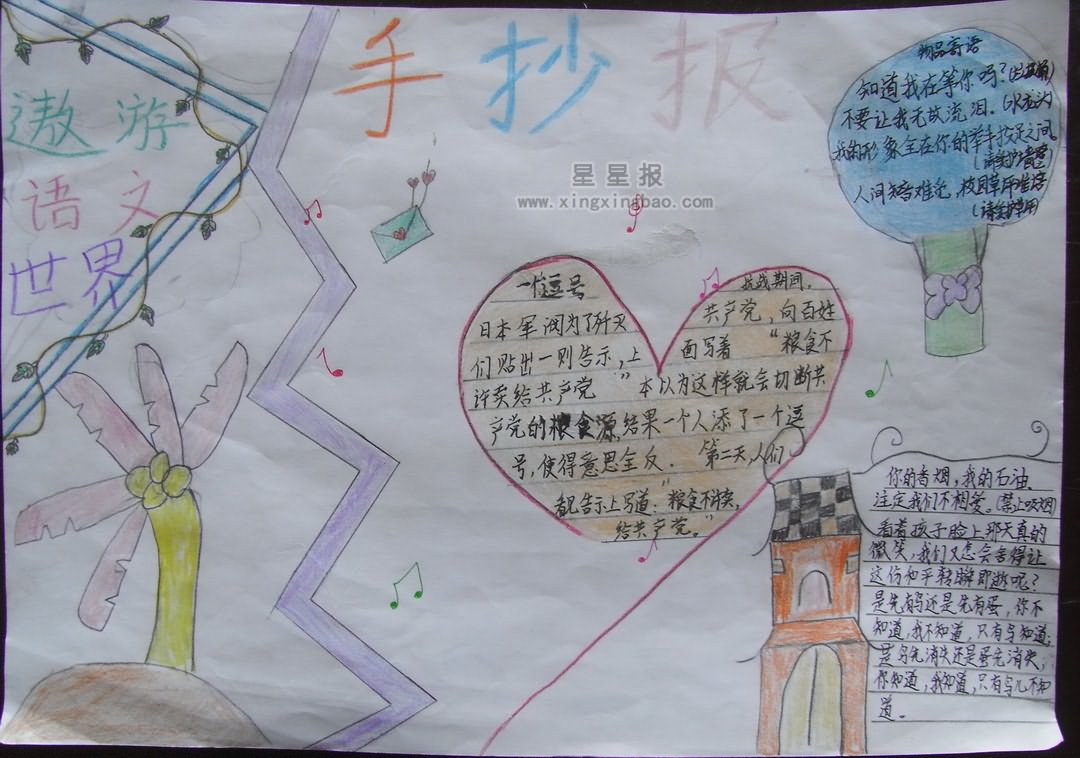 手抄报
遨游
语文
世界
星星报
www.xingxingbao.com
物品寄语
知道我在等你吗？
不要让我无故流泪。
我的形象全在你的举手投足之间。
人间知音难觅，校园草
一个逗号
日本军阀为了歼灭
们贴出一则告示，上
许卖给共产党”
产党的粮食源，结果一个人添了一个逗
号，使得意思全反.
告示上写道：“粮食不许卖，
给共产党。”
抗战期间，
共产党，向百姓
面写着 “粮食不
本以为这样就会切断共
第二天，人们
你的香烟，我的石油
注定我们不相爱。(禁止吸烟)
看着孩子脸上那天真的
微笑，我们又怎会舍得让
这份和平转瞬即逝呢？
是先有鸟还是先有蛋，你不
知道，我不知道，只有鸟知道；
是鸟先消失还是蛋先消失，
你知道，我知道，只有鸟儿不知
道。